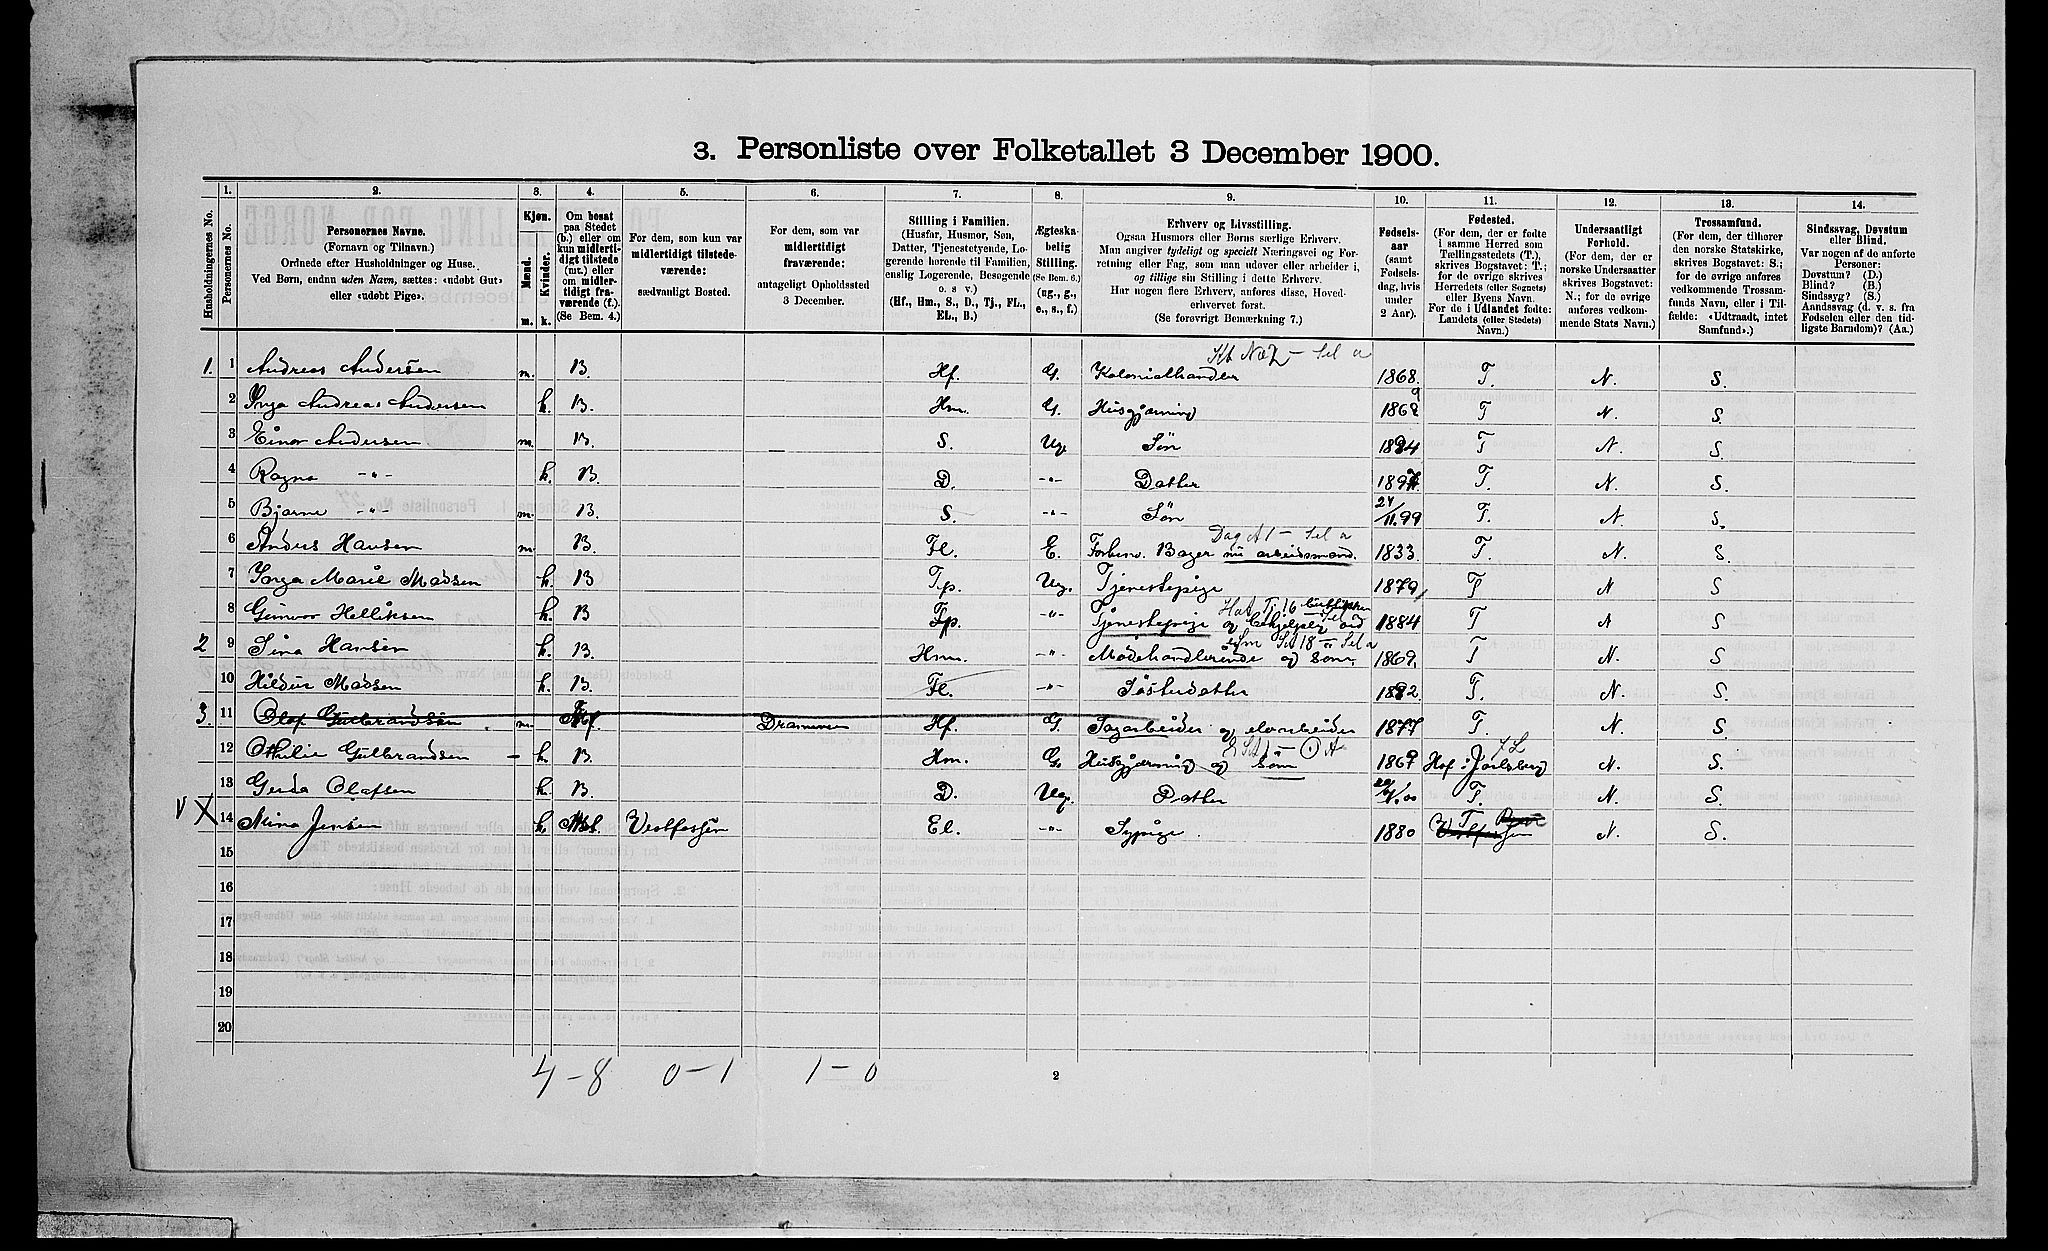 3. Personliste over Folketallet 3 December 1900.
Husholdningernes No.
1. Personernes No.
2. Personernes Navne.
(Fornavn og Tilnavn.)
Ordnede efter Husholdninger og Huse.
Ved Børn, endnu uden Navn, sættes: «udøbt Gut»
eller «udøbt Pige».
3. Kjøn.
Mænd.
Kvinder.
m. k.
4.
Om bosat
paa Stedet
(b.) eller om
kun midlerti-
digt tilstede
(mt.) eller
om midler-
tidigt fra-
værende (f.).
(Se Bem. 4.)
5.
For dem, som kun var
midlertidigt tilstede-
værende:
sædvanligt Bosted.
6.
For dem, som var
midlertidigt
fraværende:
antageligt Opholdssted
3 December.
7.
Stilling i Familien.
(Husfar, Husmor, Søn,
Datter, Tjenestetyende, Lo-
gerende hørende til Familien,
enslig Logerende, Besøgende
o. s. v.)
(Hf., Hm., S., D., Tj., FL.,
EL., B.)
8.
Ægteska-
belig
Stilling.
(Se Bem. 6.)
(ug., g.,
e., s., f.)
9.
Erhverv og Livsstilling.
Ogsaa Husmors eller Børns særlige Erhverv.
Man angiver tydeligt og specielt Næringsvei og For-
retning eller Fag, som man udøver eller arbeider i,
og tillige sin Stilling i dette Erhverv.
Har nogen flere Erhverv, anføres disse, Hoved-
erhvervet først.
(Se forøvrigt Bemærkning 7.)
10.
Fødsels-
aar
(samt
Fødsels-
dag, hvis
under
2 Aar).
11.
Fødested.
(For dem, der er fødte
i samme Herred som
Tællingsstedets (T.),
skrives Bogstavet: T.;
for de øvrige skrives
Herredets (eller Sognets)
eller Byens Navn.
For de i Udlandet fødte:
Landets (eller Stedets)
Navn.)
12.
Undersaatligt
Forhold.
(For dem, der er
norske Undersaatter
skrives Bogstavet:
N.; for de øvrige
anføres vedkom-
mende Stats Navn.)
13.
Trossamfund.
(For dem, der tilhører
den norske Statskirke,
skrives Bogstavet: S.;
for de øvrige anføres
vedkommende Trossam-
funds Navn, eller i Til-
fælde: «Udtraadt, intet
Samfund».)
14.
Sindssvag, Døvstum
eller Blind.
Var nogen af de anførte
Personer:
Døvstum? (D.)
Blind? (B.)
Sindssyg? (S.)
Aandssvag (d. v. s. fra
Fødselen eller den tid-
ligste Barndom)? (Aa.)
1. 1 Andreas Andersen m. B. Hf. G. Kolonialhandler 1868. T. N. S.
2 Inga Andreas Andersen k. B. Hm. G. Husgjerning 1869 T N. S.
3 Einar Andersen m. B. S. Ug. Søn 1894 T N. S.
4 Ragna -"- k. B. D. -"- Datter 1897. T. N. S.
5 Bjarne -"- m. B. S. -"- Søn 24/11.99 T. N. S.
6 Anders Hansen m. B. Fl. E. Forhenv. Bager nu arbeidsmand. 1833. T. N. S.
7 Inga Marie Madsen k. B T.p. Ug. Tjenestepige 1879 T N S
8 Gunvor Helliksen k. B T.p. -"- Tjenestepige og 1884 T N S
2 9 Sina Hansen k. B. Hm. -"- Modehandlerinde og Søm. 1869. T N. S
10 Hildur Madsen k. B. Fl. -"- Søsterdatter 1892. T. N. S.
3. 11 Olaf Gulbrandsen m. f. Drammen Hf. G. Sagarbeider og 1877 T. N. S
12 Othilie Gulbrandsen k. B. Hm. G. Husgjerning og Søm 1867 Hof i Jarlsberg N. S.
13 Gerda Olafsen k. B. D. Ug. Datter T. N. S.
V X 14 Mina Jensen k. Mt. Vestfossen El. -"- Sypige. 1880 T Vestfossen N. S.
15
16
17
18
19
20
4 - 8 0 - 1 1 - 0
2